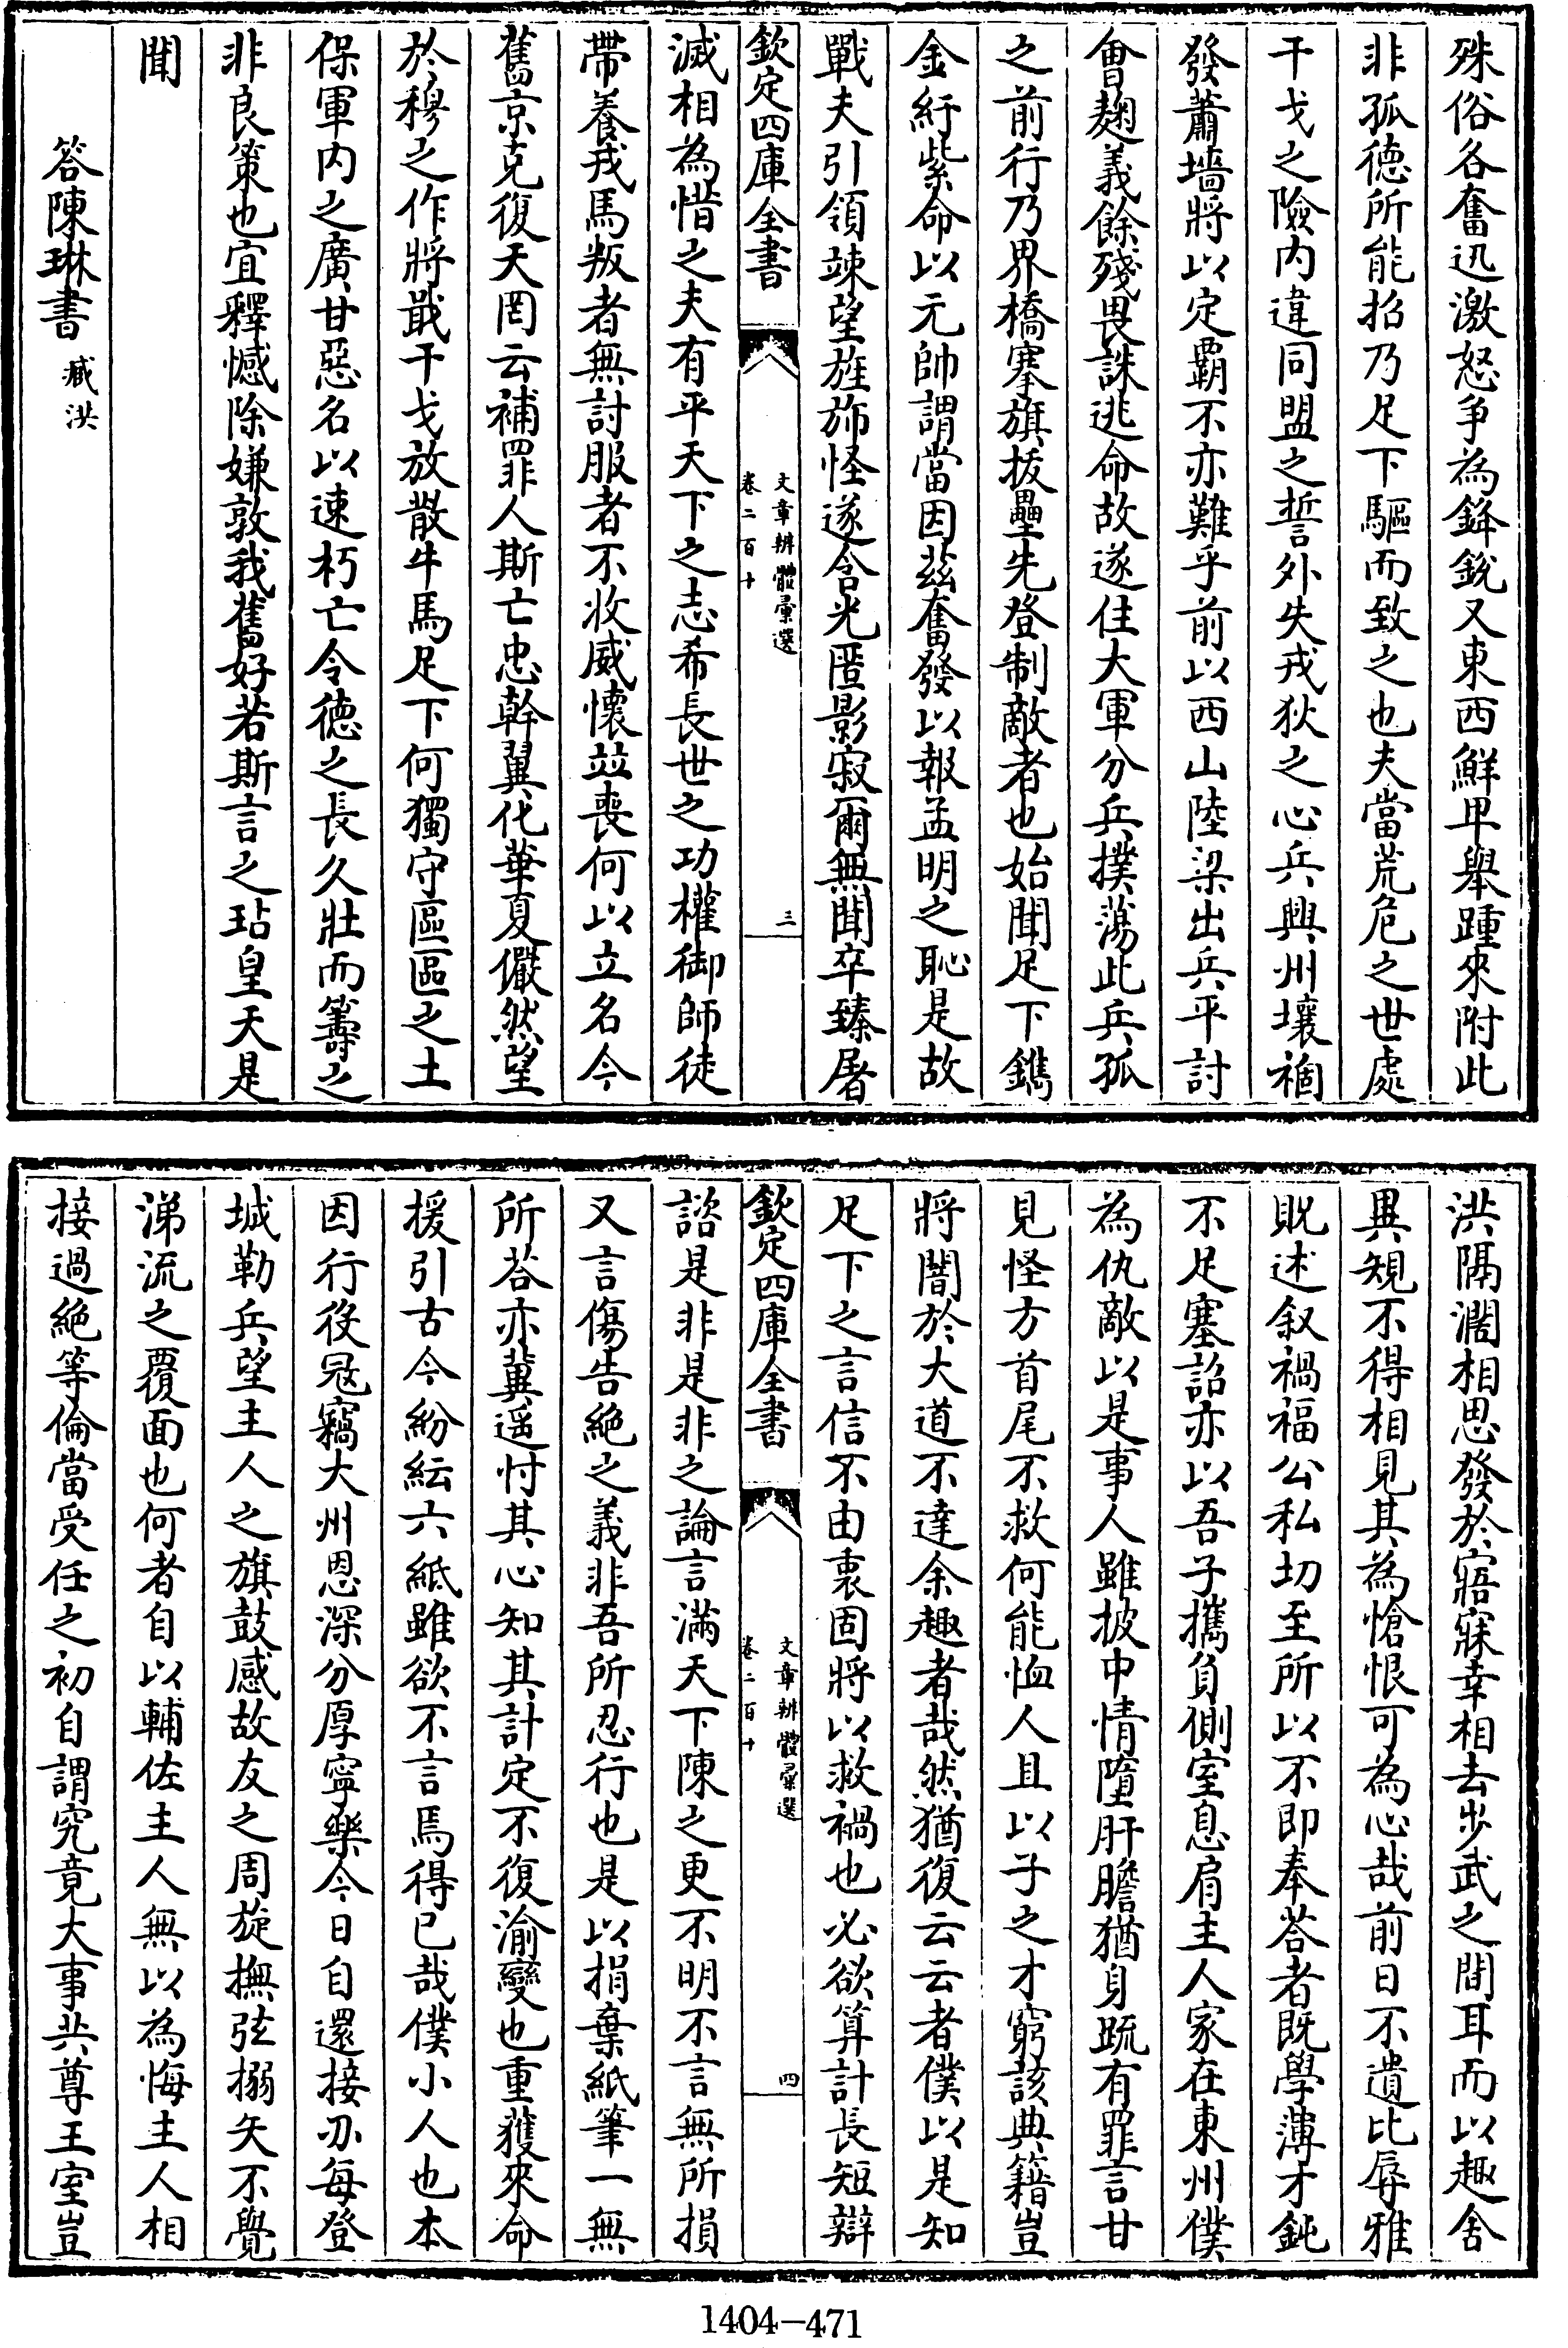 殊俗各奮迅激怒争為鋒銳又東西鮮卑舉踵來附此
非孤徳所能招乃足下驅而致之也夫當荒危之世處
干戈之險内違同盟之誓外失戎狄之心兵興州壤禍
發蕭墻將以定覇不亦難乎前以西山陸梁出兵平討
會麹義餘殘畏誅逃命故遂住大軍分兵撲蕩此兵孤
之前行乃界橋搴旗拔壘先登制敵者也始聞足下鐫
金紆紫命以元帥謂當因兹奮發以報孟明之恥是故
戰夫引領竦望旌斾怪遂含光匿影寂爾無聞卒臻屠
欽定四庫全書
文章辨體彚選
卷二百十
三
滅相為惜之夫有平天下之志希長世之功權御師徒
帶養戎馬叛者無討服者不收威懷竝喪何以立名今
舊京克復天罔云補罪人斯亡忠幹翼化華夏儼然望
於穆之作將戢干戈放散牛馬足下何獨守區區之土
保軍内之廣甘惡名以速朽亡令徳之長久壯而籌之
非良策也宜釋憾除嫌敦我舊好若斯言之玷皇天是
聞
答陳琳書 臧洪
洪隔濶相思發於寤寐幸相去步武之間耳而以趣舍
異規不得相見其為愴恨可為心哉前日不遺比辱雅
貺述叙禍福公私切至所以不即奉答者既學薄才鈍
不足塞詔亦以吾子攜負側室息肩主人家在東州僕
為仇敵以是事人雖披中情墮肝膽猶身疏有罪言甘
見怪方首尾不救何能恤人且以子之才窮該典籍豈
將闇於大道不達余趣者哉然猶復云云者僕以是知
足下之言信不由衷固將以救禍也必欲算計長短辯
欽定四庫全書
文章辨體彚選
卷二百十
四
諮是非是非之論言滿天下陳之更不明不言無所損
又言傷告絶之義非吾所忍行也是以捐棄紙筆一無
所荅亦冀遥忖其心知其計定不復渝變也重獲來命
援引古今紛紜六紙雖欲不言焉得已哉僕小人也本
因行役冦竊大州恩深分厚寜樂今日自還接刅每登
城勒兵望主人之旗鼓感故友之周旋撫弦搦矢不覺
涕流之覆面也何者自以輔佐主人無以為悔主人相
接過絶等倫當受任之初自謂究竟大事共尊王室豈
1404-471